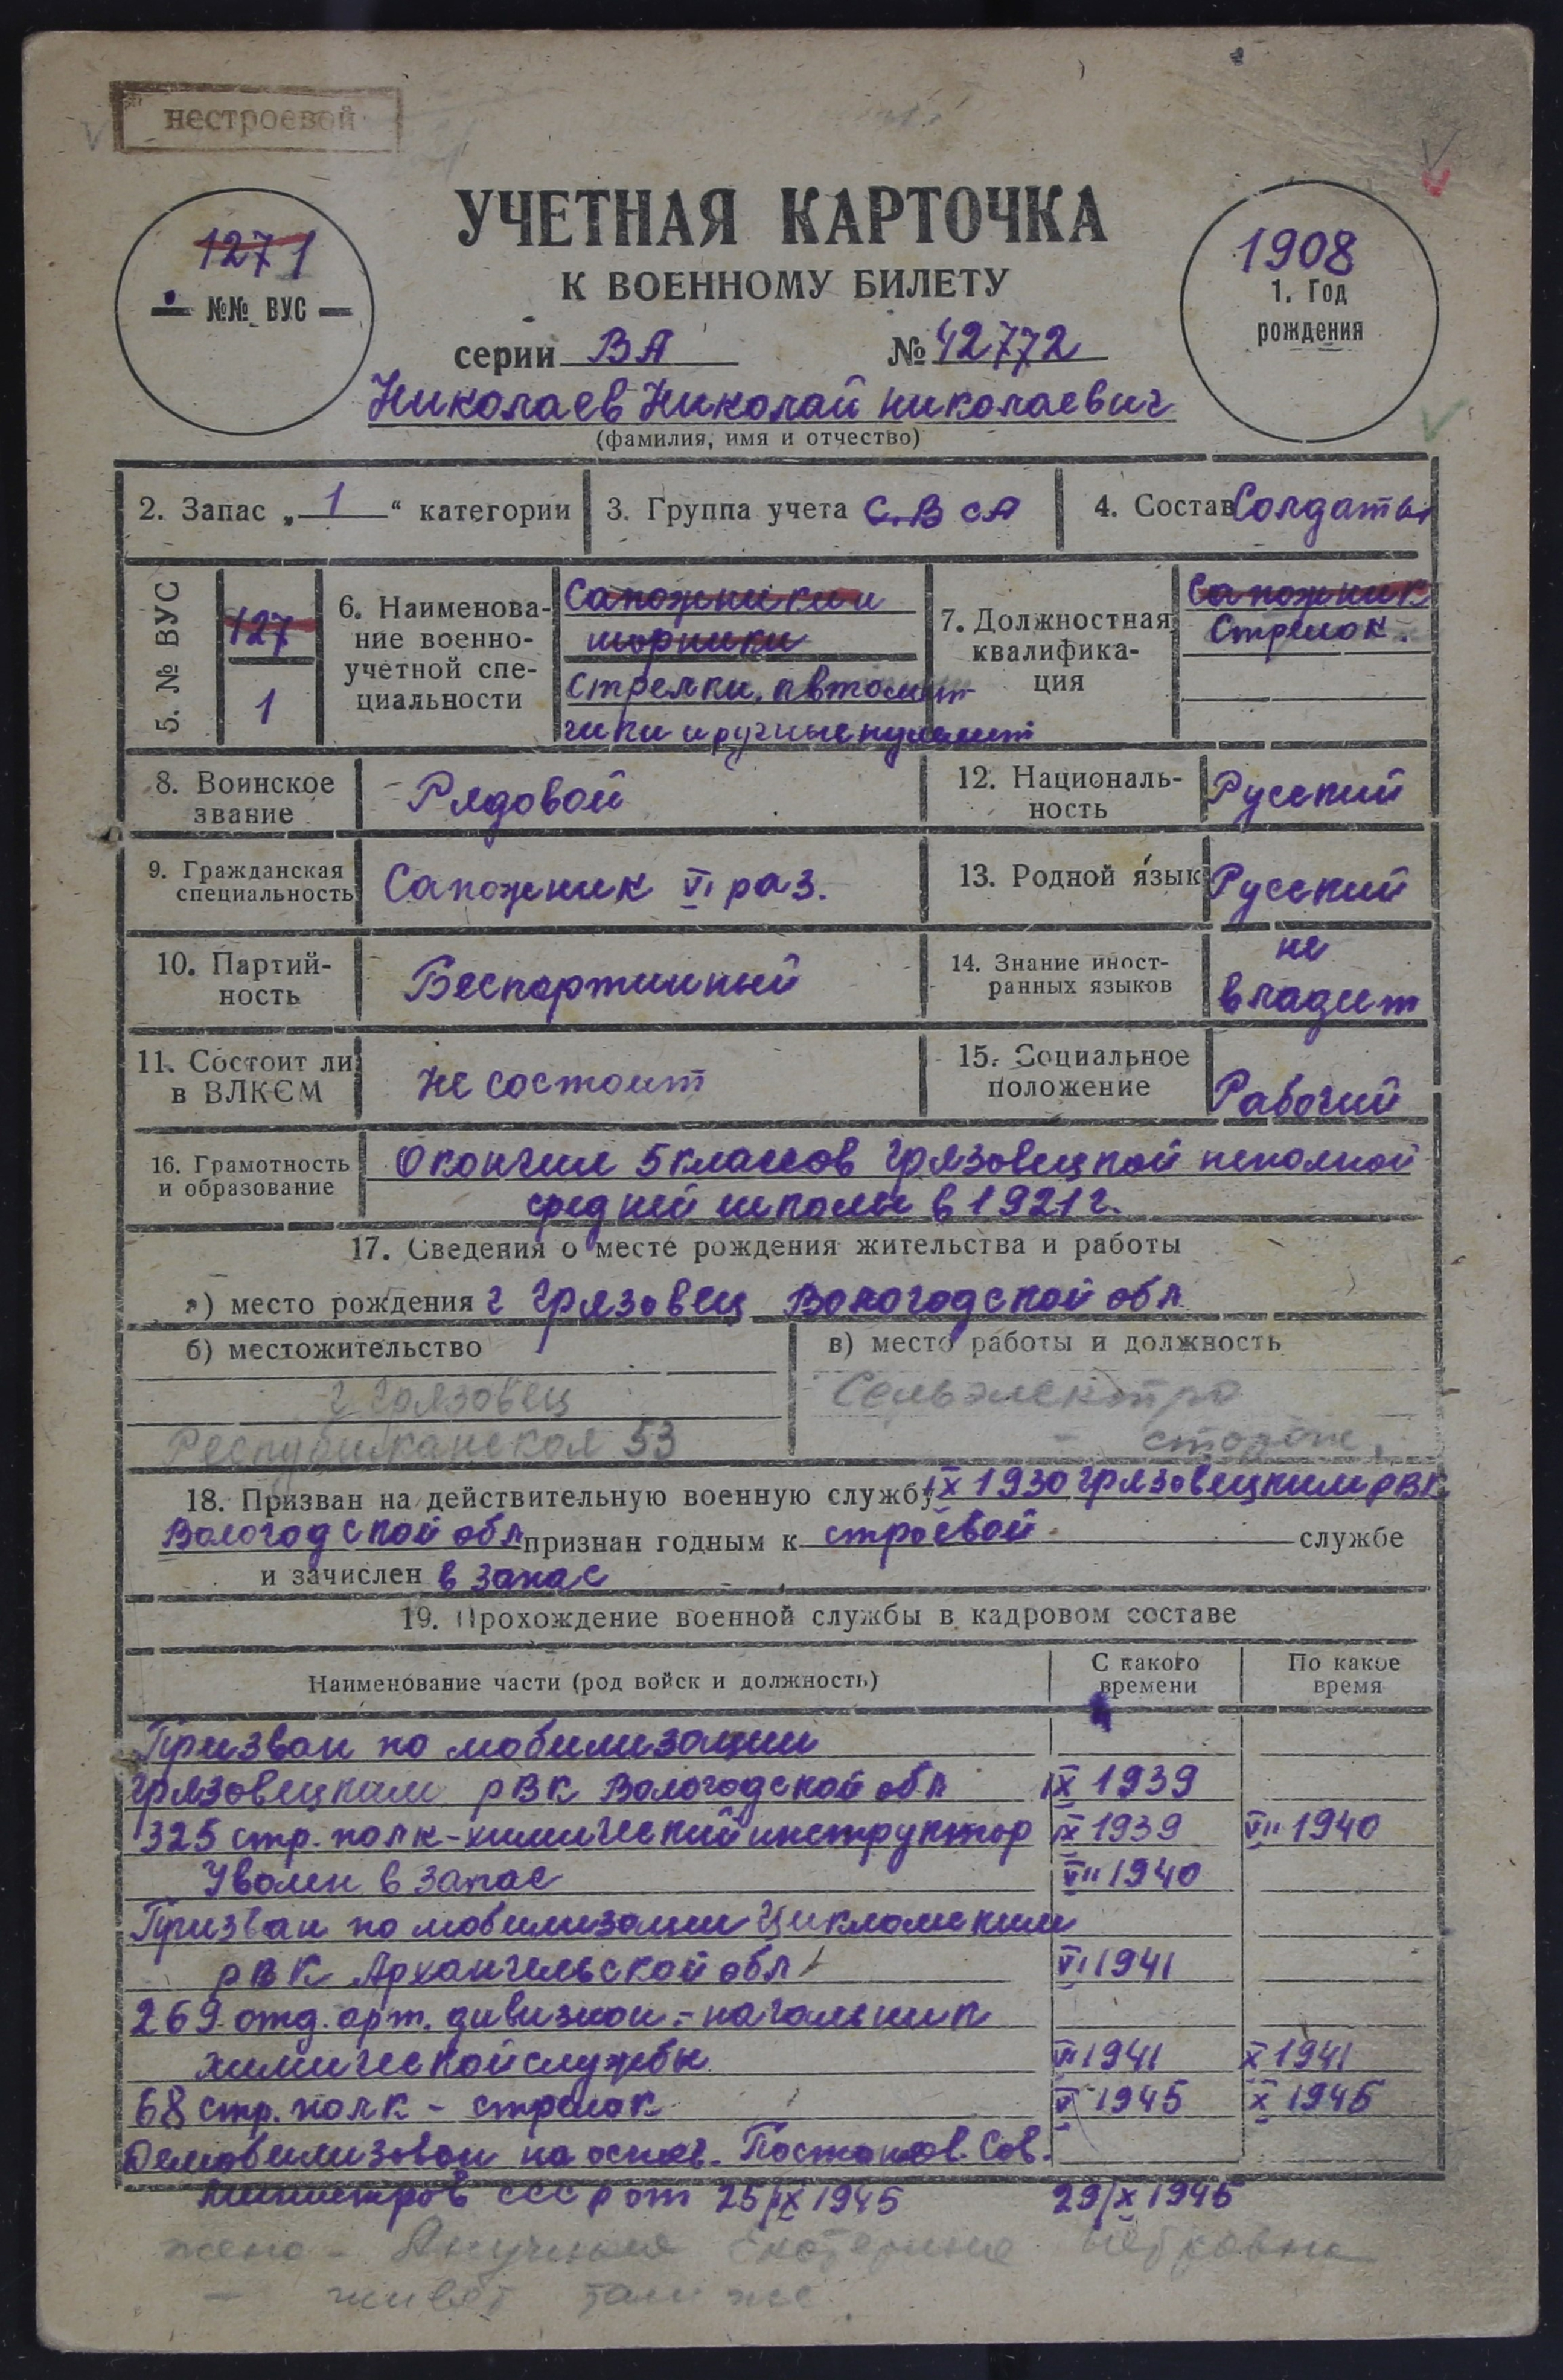 нестроевой
УЧЕТНАЯ КАРТОЧКА
К ВОЕННОМУ БИЛЕТУ
серии ВА № 42772
1271
№№ ВУС
1908
1. Год
рождения
Николаев Николай николаевич
(фамилия, имя и отчество)
2. Запас „ 1 “ категории
3. Группа учета С.В СА
4. Состав Солдаты
5. № ВУС
127
1
6. Наименова-
ние военно-
учетной спе-
циальности
Сапожники и
шорники
Стрелки, автомат-
чики и ручные пулемет
7. Должностная
квалифика-
ция
Сапожник
Стрелок.
8. Воинское
звание
Рядовой
12. Националь-
ность
Русский
9. Гражданская
специальность
Сапожник VI раз.
13. Родной язык
Русский
10. Партий-
ность
Беспартийный
14. Знание иност-
ранных языков
не
владеит
11. Состоит ли
в ВЛКСМ
Не состоит
15. Социальное
положение
Рабочий
16. Грамотность
и образование
Окончил 5 классов Грязовецкой неполной
средней школы в 1921 г.
17. Сведения о месте рождения жительства и работы
а) место рождения г Грязовец Вологодской обл
б) местожительство
г Грязовец
Республиканская 53
в) место работы и должность
Сельэлектро
- сторож.
18. Призван на действительную военную службу IX 1930 Грязовецким РВК
Вологодской обл признан годным к строевой службе
и зачислен в запас
19. Прохождение военной службы в кадровом составе
Наименование части (род войск и должность)
С какого
времени
По какое
время
Призван по мобилизации
Грязовецким РВК Вологодской обл IX 1939
325 стр. полк - химический инструктор IX 1939 VII 1940
Уволен в запас VII 1940
Призван по мобилизации
РВК Архангельской обл VI 1941
269 отд. арт. дивизион - начальник
химической службы VI 1941 X 1941
68 стр. полк - стрелок V 1945 X 1945
Демобилизован на основ. Постанов. Сов.
Министров СССР от 25/IX 1945 29/X 1945
жена - Екатерина
- живет там же